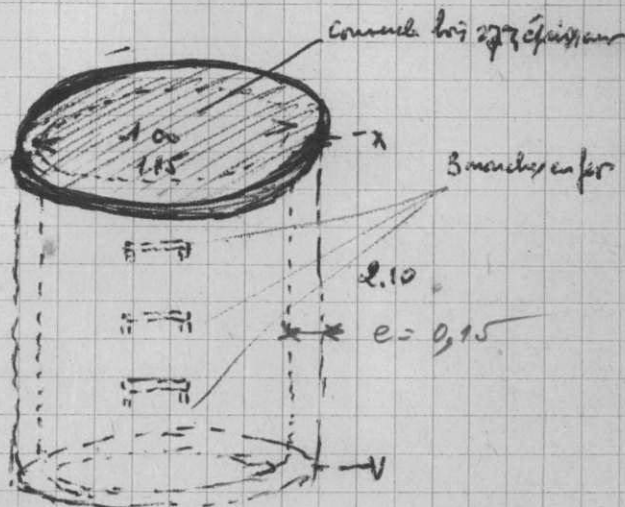 couvercle bois 27 % épaisseur
1.00
1.15
3 marches en fer
2.10
e = 0,15